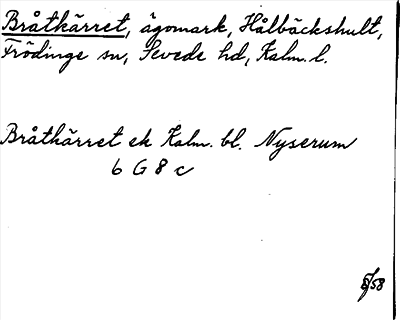 Bråtkärret, ägomark, Hålbäckshult,
Frödinge sn, Sevede hd, Kalm. l.
Bråtkärret ek Kalm. bl. Nyserum
6 G 8 c